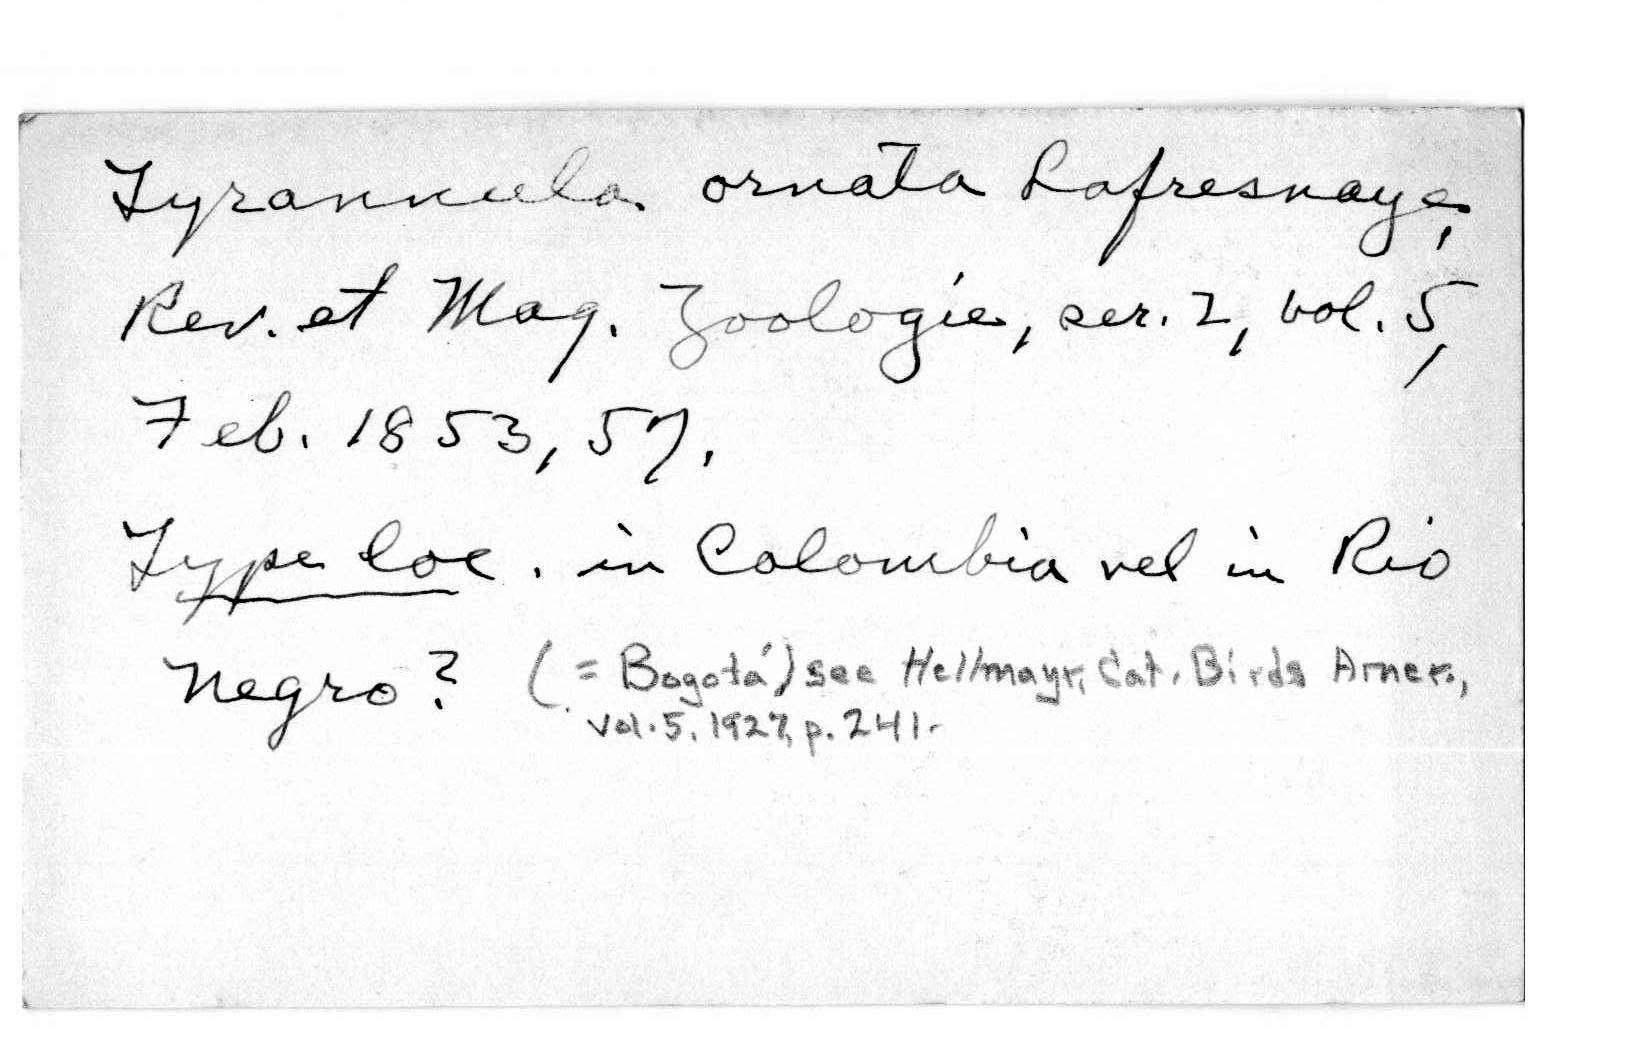 Tyrannula ornata Lafresnaye,
Rev. et Mag. Zoologie, ser. 2, vol. 5,
Feb. 1853, 57.
Type loc. in Colombia vel in Rio
Negro? (= Bogotá) see Hellmayr, Cat. Birds Amer.,
vol. 5, 1927, p. 241.